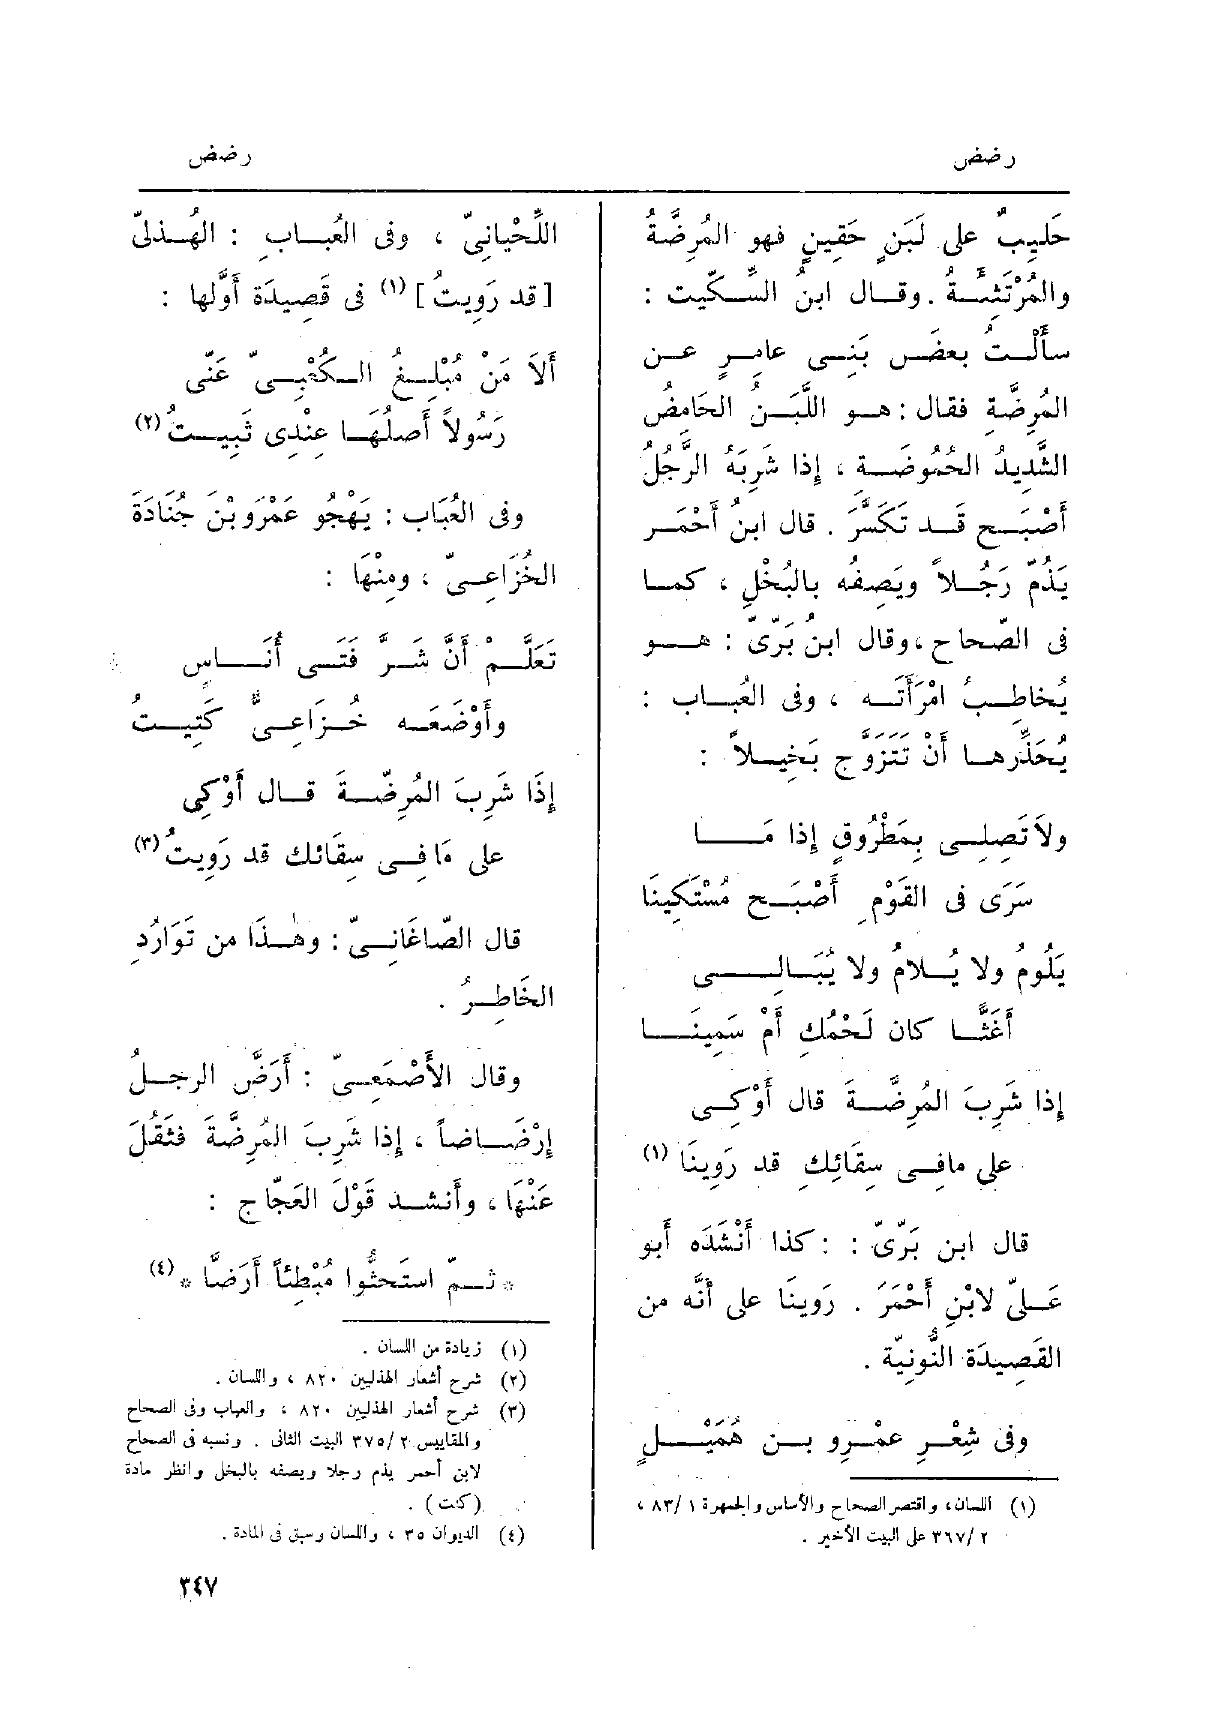 رضض
رضض
حَلِيبٌ على لَبَنٍ حَقِينٍ فهو المُرِضَّةُ
والمُرْتَثِئَةُ . وقال ابنُ السِّكِّيت :
سأَلْتُ بعضَ بَنِى عامِرٍ عن
المُرِضَّةِ فقال : هو اللَّبَنُ الحَامِضُ
الشَّدِيدُ الحُمُوضَةِ ، إذا شَرِبَهُ الرَّجُلُ
أَصْبَحَ قَد تَكَسَّرَ . قال ابنُ أَحْمَر
يَذُمُّ رَجُلاً ويَصِفُه بالبُخْلِ ، كما
فى الصّحاح ، وقال ابنُ بَرّىّ : هو
يُخاطِبُ امْرَأَتَه ، وفى العُباب :
يُحَذِّرها أَنْ تَتَزَوَّجَ بَخِيلاً :
ولاَ تَصِلِى بِمَطْرُوقٍ إذا مَا
سَرَى فى القَوْمِ أَصْبَح مُسْتَكِينَا
يَلُومُ ولا يُلامُ ولا يُبَالِى
أَغَثًّا كان لَحْمُكِ أَمْ سَمِينَا
إذا شَرِبَ المُرِضَّةَ قال أَوْكِى
على مافِى سِقَائِكِ قد رَوِينَا (١)
قال ابن بَرّىّ : : كذا أَنْشَدَه أَبو
عَلىّ لابْنِ أَحْمَرَ . رَوِينَا على أَنَّه من
القَصِيدَة النُّونِيَّة .
وفى شِعْرِ عمْرِو بن هُمَيْلٍ
(١) اللسان، واقتصر الصحاح والأساس والجمهرة ١ /٨٣ ،
٢ /٣٦٧ على البيت الأخير .
اللِّحْيانِىّ ، وفى العُبابِ : الهُذلىّ
[ قد رَوِيتُ ] (١) فى قَصِيدَة أَوَّلها :
أَلاَ مَنْ مُبْلِغُ الكَعْبِىّ عَنِّى
رَسُولاً أَصلُهَا عِنْدِى ثَبِيتُ (٢)
وفى العُبَاب : يَهْجُو عَمْرَو بْنَ جُنَادَةَ
الخُزَاعِىّ ، ومِنْهَا :
تَعَلَّمْ أَنَّ شَرَّ فَتَى أُنَاسٍ
وأَوْضَعَه خُزَاعِىٌّ كَتِيتُ
إِذَا شَرِبَ المُرِضّةَ قال أَوْكِى
على مَا فِى سِقَائك قد رَوِيتُ (٣)
قال الصّاغَانِىّ : وهٰذَا من تَوَارُدِ
الخَاطِرُ .
وقال الأَصْمَعِىّ : أَرَضَّ الرجلُ
إِرْضَاضاً ، إذا شَرِبَ المُرِضَّةَ فَثَقُلَ
عَنْهَا ، وأَنشد قَوْلَ العَجّاج :
* ثمّ استَحثُّوا مُبْطِئاً أَرَضَّا * (٤)
(١) زيادة من اللسان .
(٢) شرح أشعار الهذليين ٨٢٠ ، واللسان .
(٣) شرح أشعار الهذليين ٨٢٠ ، والعباب وفى الصحاح
والمقاييس ٢ /٣٧٥ البيت الثانى . ونسبه فى الصحاح
لابن أحمر يذم رجلا ويصفه بالبخل وانظر مادة
(كتت) .
(٤) الديوان ٣٥ ، واللسان وسبق فى المادة .
٣٤٧